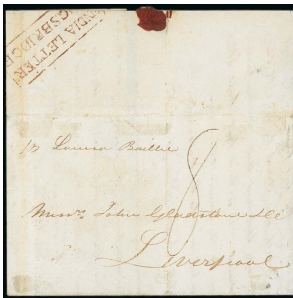 INDIA LETTER
GSBRIDGE
pr Louisa Baillie
8
Messrs. John Gladstone &Co
Liverpool